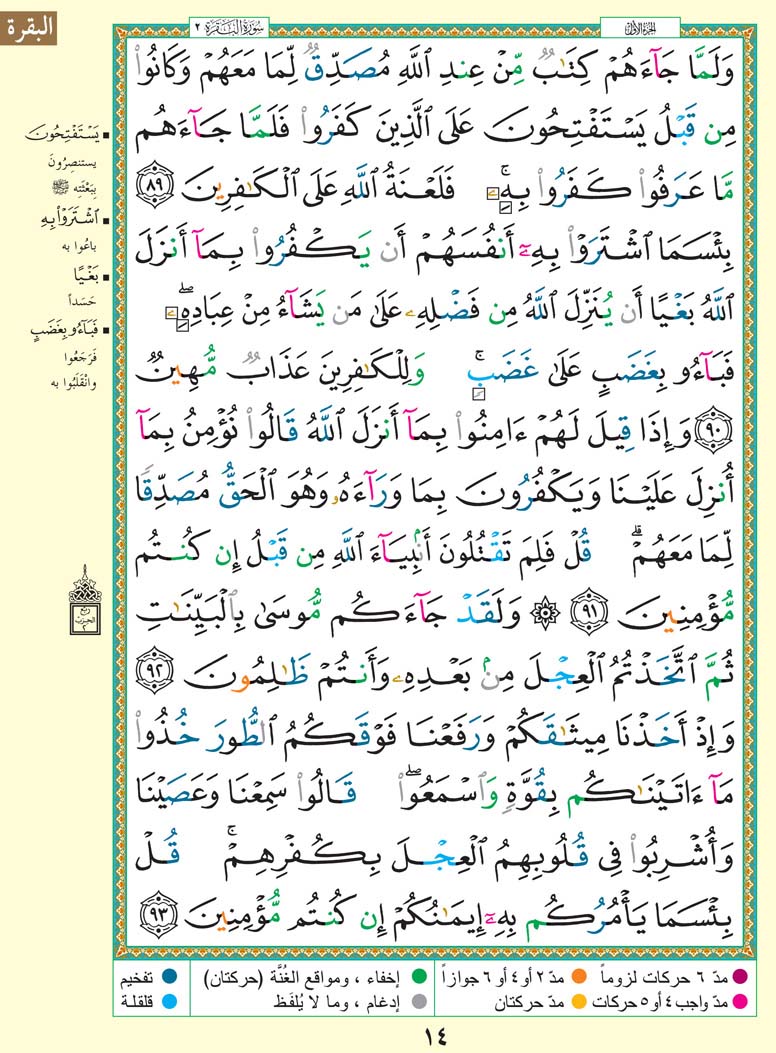 البقرة
الجزء الأول
سورة البقرة ٢
وَلَمَّا جَآءَهُمْ كِتَٰبٌ مِّنْ عِندِ ٱللَّهِ مُصَدِّقٌ لِّمَا مَعَهُمْ وَكَانُوا۟
مِن قَبْلُ يَسْتَفْتِحُونَ عَلَى ٱلَّذِينَ كَفَرُوا۟ فَلَمَّا جَآءَهُم
مَّا عَرَفُوا۟ كَفَرُوا۟ بِهِۦ ۚ فَلَعْنَةُ ٱللَّهِ عَلَى ٱلْكَٰفِرِينَ ٨٩
بِئْسَمَا ٱشْتَرَوْا۟ بِهِۦٓ أَنفُسَهُمْ أَن يَكْفُرُوا۟ بِمَآ أَنزَلَ
ٱللَّهُ بَغْيًا أَن يُنَزِّلَ ٱللَّهُ مِن فَضْلِهِۦ عَلَىٰ مَن يَشَآءُ مِنْ عِبَادِهِۦ ۖ
فَبَآءُو بِغَضَبٍ عَلَىٰ غَضَبٍ ۚ وَلِلْكَٰفِرِينَ عَذَابٌ مُّهِينٌ
٩٠ وَإِذَا قِيلَ لَهُمْ ءَامِنُوا۟ بِمَآ أَنزَلَ ٱللَّهُ قَالُوا۟ نُؤْمِنُ بِمَآ
أُنزِلَ عَلَيْنَا وَيَكْفُرُونَ بِمَا وَرَآءَهُۥ وَهُوَ ٱلْحَقُّ مُصَدِّقًا
لِّمَا مَعَهُمْ ۗ قُلْ فَلِمَ تَقْتُلُونَ أَنۢبِيَآءَ ٱللَّهِ مِن قَبْلُ إِن كُنتُم
مُّؤْمِنِينَ ٩١ ۞ وَلَقَدْ جَآءَكُم مُّوسَىٰ بِٱلْبَيِّنَٰتِ
ثُمَّ ٱتَّخَذْتُمُ ٱلْعِجْلَ مِنۢ بَعْدِهِۦ وَأَنتُمْ ظَٰلِمُونَ ٩٢
وَإِذْ أَخَذْنَا مِيثَٰقَكُمْ وَرَفَعْنَا فَوْقَكُمُ ٱلطُّورَ خُذُوا۟
مَآ ءَاتَيْنَٰكُم بِقُوَّةٍ وَٱسْمَعُوا۟ ۖ قَالُوا۟ سَمِعْنَا وَعَصَيْنَا
وَأُشْرِبُوا۟ فِى قُلُوبِهِمُ ٱلْعِجْلَ بِكُفْرِهِمْ ۚ قُلْ
بِئْسَمَا يَأْمُرُكُم بِهِۦٓ إِيمَٰنُكُمْ إِن كُنتُم مُّؤْمِنِينَ ٩٣
▪ يَسْتَفْتِحُونَ
يستنصِرُونَ
بِبَعْثَتِه ﷺ
▪ ٱشْتَرَوْا۟ بِهِۦ
باعُوا به
▪ بَغْيًا
حَسَداً
▪ فَبَآءُو بِغَضَبٍ
فَرَجَعُوا
وانْقَلَبُوا به
ربع
الحزب
٢
● مدّ ٦ حركات لزوماً ● مدّ ٢ أو ٤ أو ٦ جوازاً ● إخفاء ، ومواقع الغُنَّة (حركتان) ● تفخيم
● مدّ واجب ٤ أو ٥ حركات ● مدّ حركتان ● إدغام ، وما لا يُلفَظ ● قلقلة
١٤